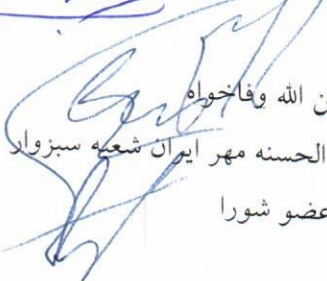 الله وفاخواه
الحسنه مهر ایران شعبه سبزوار
عضو شورا